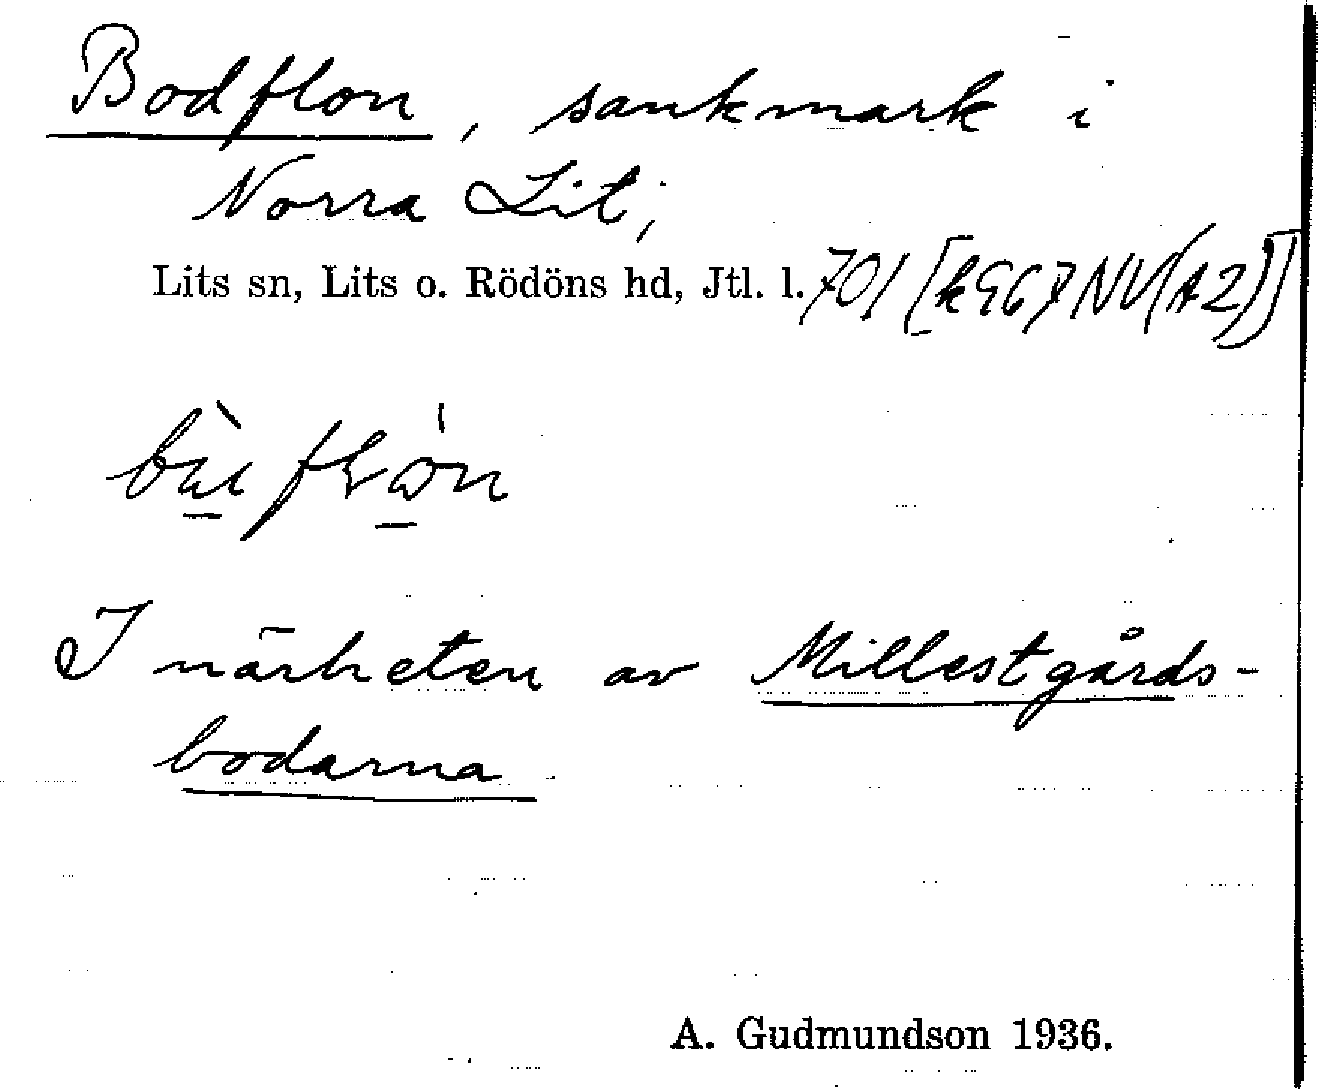 Bodflon, sankmark i
Norra Lit,
Lits sn, Lits o. Rödöns hd, Jtl. l. 701
I närheten av Millestgårds-
bodarna
A. Gudmundson 1936.